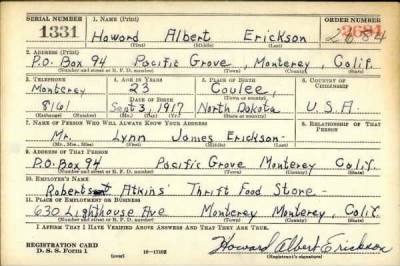 SERIAL NUMBER 1. NAME (Print) ORDER NUMBER
1331 Howard Albert Erickson 2684
(First) (Middle) (Last)
2. ADDRESS (Print)
P.O. Box 94 Pacific Grove, Monterey, Calif.
(Number and street or R. F. D. number) (Town) (County) (State)
3. TELEPHONE 4. AGE IN YEARS 5. PLACE OF BIRTH 6. COUNTRY OF CITIZENSHIP
Monterey 23 Coulee,
DATE OF BIRTH (Town or county)
8161 Sept 3, 1917 North Dakota U.S.A.
(Exchange) (Number) (Mo.) (Day) (Yr.) (State or country)
7. NAME OF PERSON WHO WILL ALWAYS KNOW YOUR ADDRESS 8. RELATIONSHIP OF THAT PERSON
Mr. Lynn James Erickson -
(Mr., Mrs., Miss) (First) (Middle) (Last)
9. ADDRESS OF THAT PERSON
P.O. Box 94 Pacific Grove Monterey Calif.
(Number and street or R. F. D. number) (Town) (County) (State)
10. EMPLOYER'S NAME
Atkins' Thrift Food Store -
11. PLACE OF EMPLOYMENT OR BUSINESS
630 Lighthouse Ave Monterey Monterey, Calif.
(Number and street or R. F. D. number) (Town) (County) (State)
I AFFIRM THAT I HAVE VERIFIED ABOVE ANSWERS AND THAT THEY ARE TRUE.
REGISTRATION CARD
D. S. S. Form 1 16—17105 Howard Albert Erickson
(Registrant's signature)